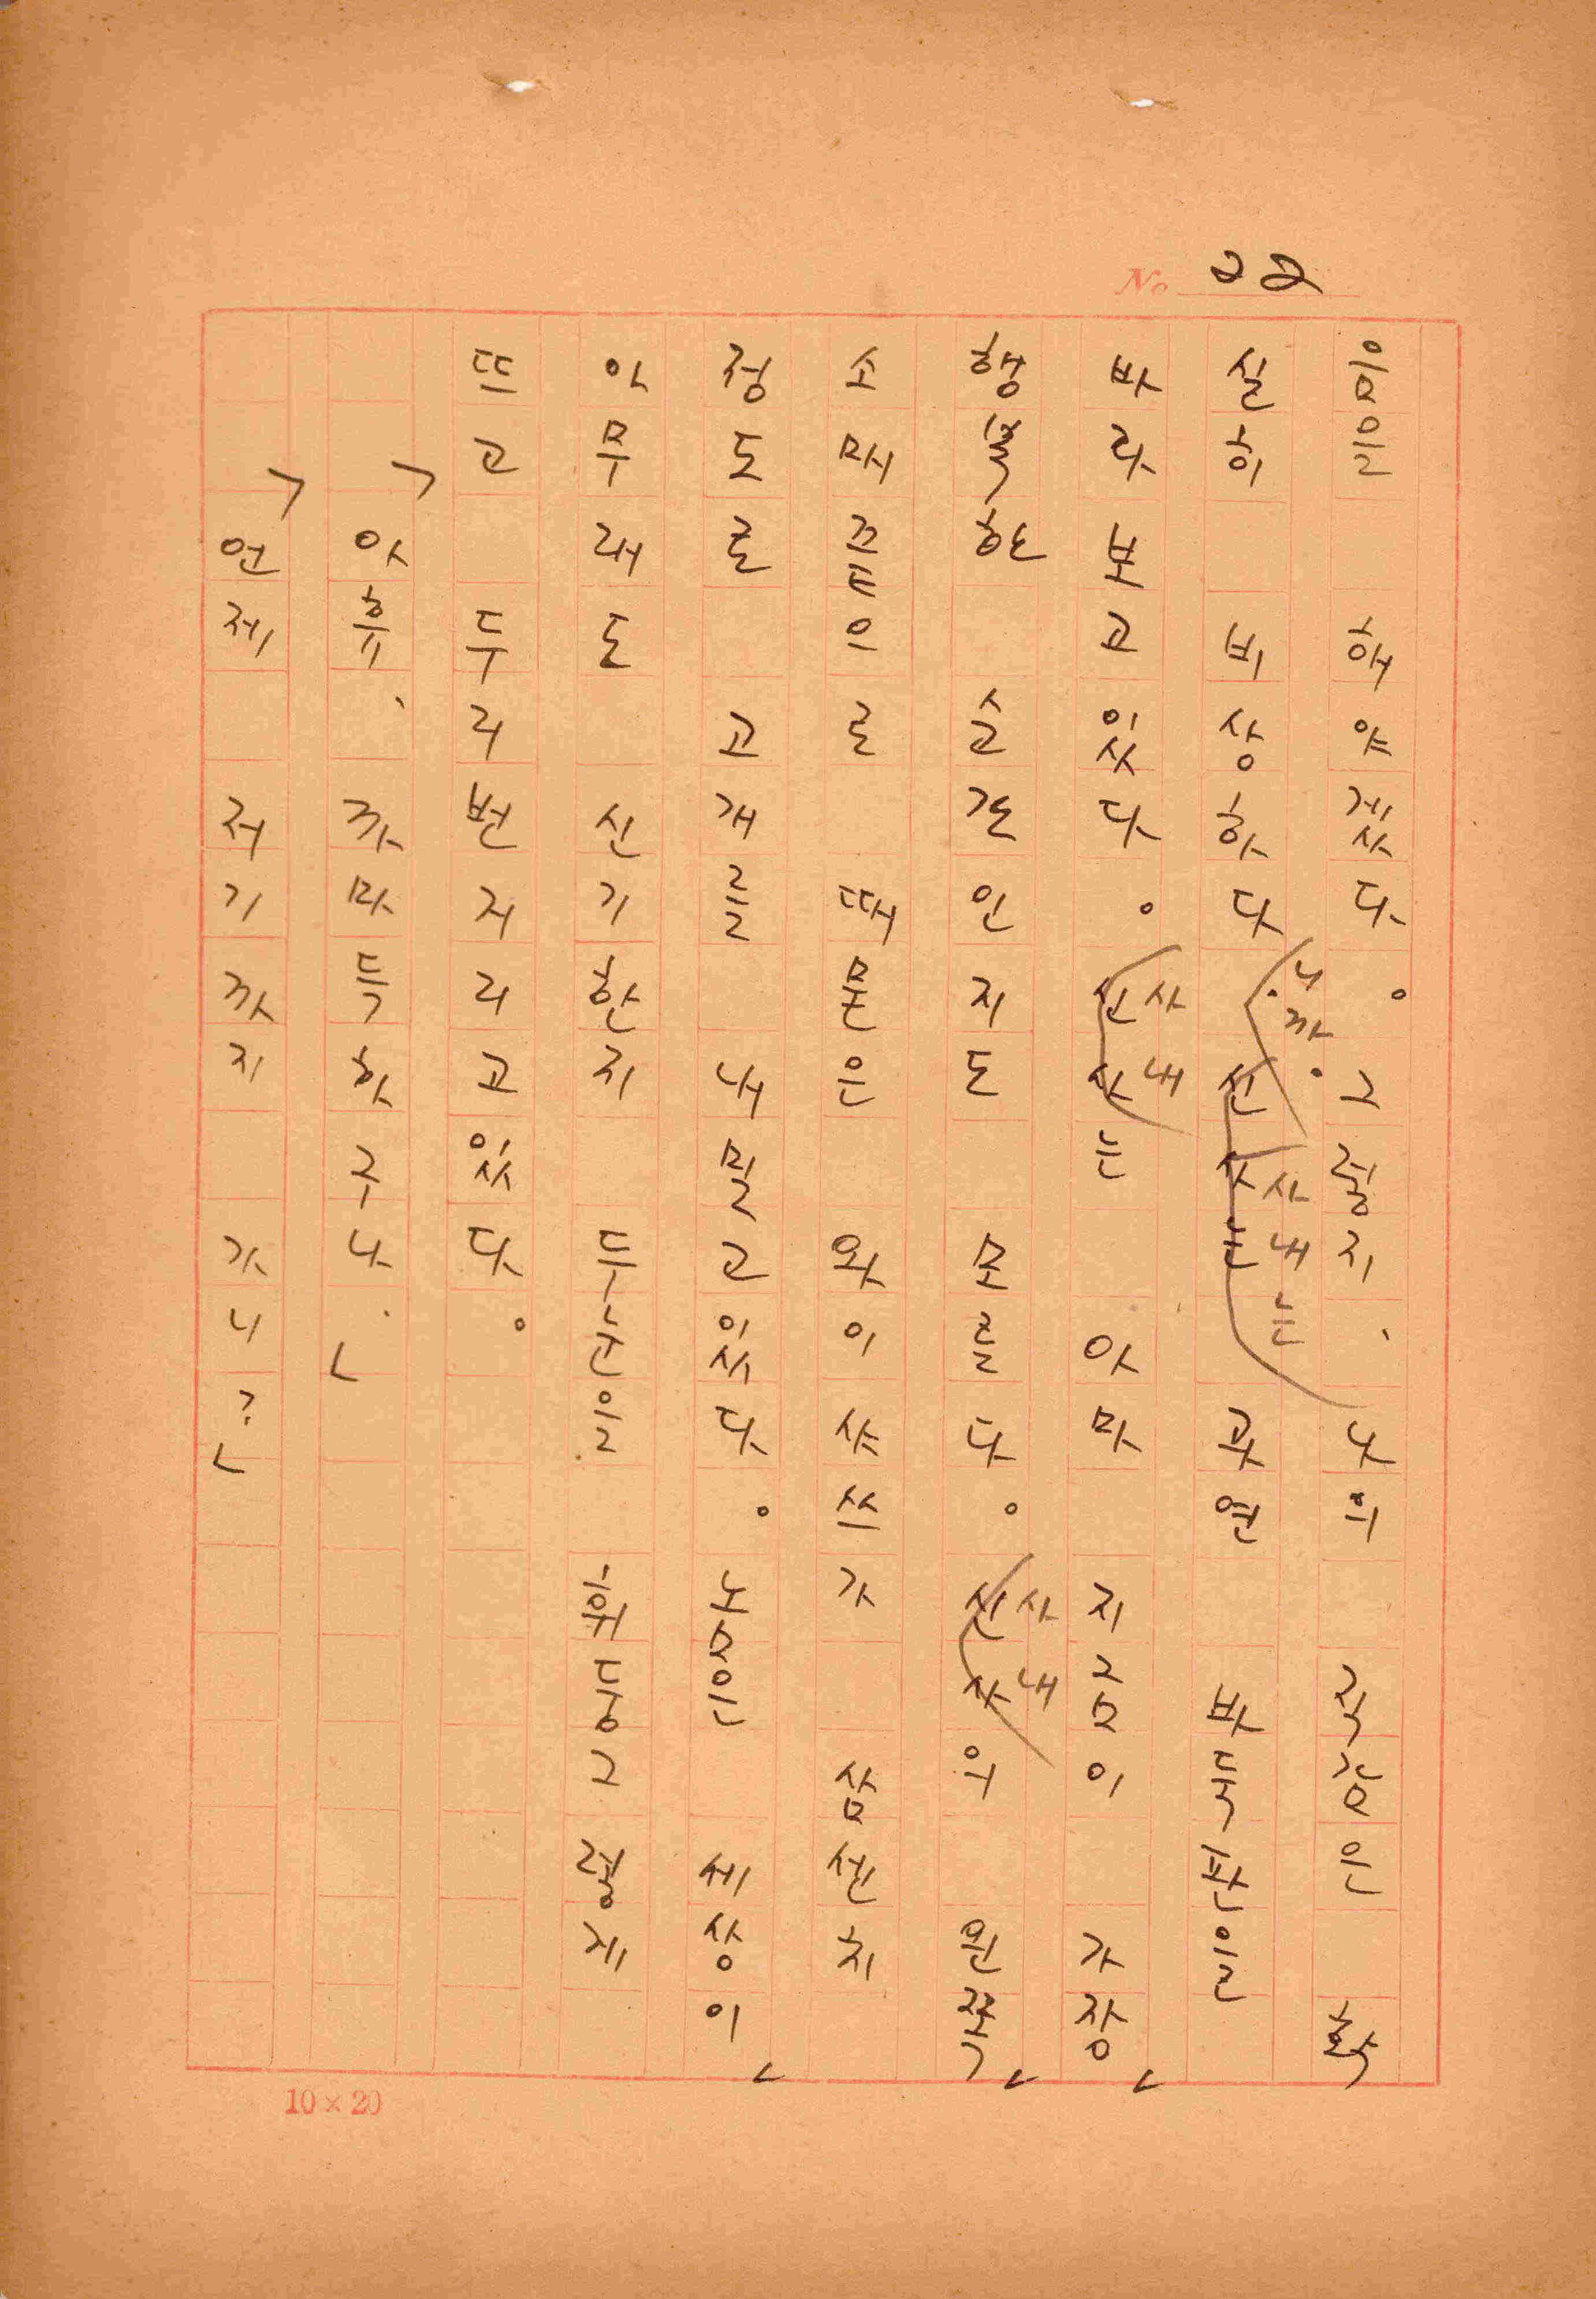 No 22
음을 해야겠다。그렇지、나의 직감은 확
실히 비상하다니까. 신사는 사내는 과연 바둑판을
바라보고있다。신사 사내는 아마 지금이 가장
행복한 순간인지도 모른다。신사 사내의 왼쪽
소매끝으로 때묻은 와이샤쓰가 삼센치
정도로 고개를 내밀고있다。놈은 세상이
아무래도 신기한지 두눈을 휘둥그렇게
뜨고 두리번거리고있다。
「아휴、까마득하구나.」
「언제 저기까지 가니?」
10×20